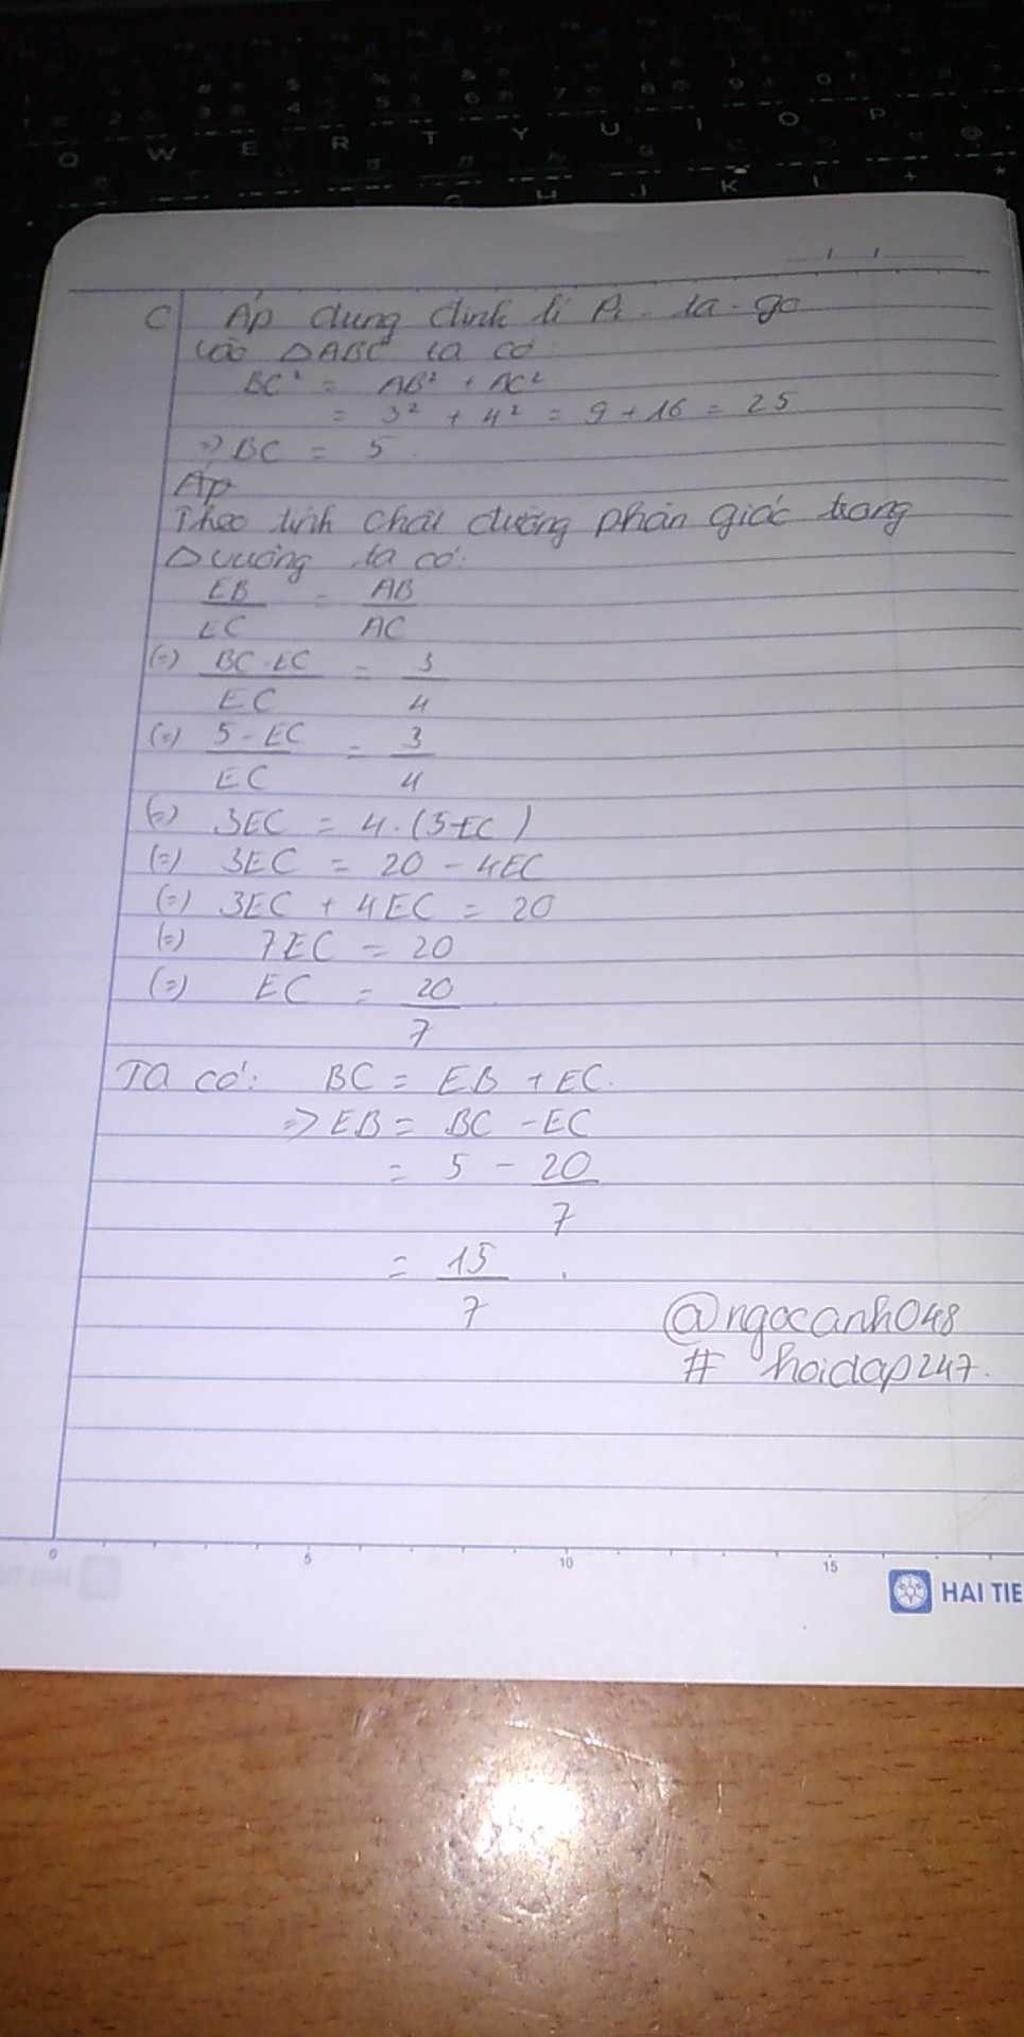 Q W E R T Y U I O P
J K L
C Áp dụng định lí Pi-ta-go
vào △ABC ta có
BC² = AB² + AC²
= 3² + 4² = 9 + 16 = 25
=> BC = 5
Áp
Theo tính chất đường phân giác trong
△ vuông ta có:
EB/EC = AB/AC
(=) BC-EC/EC = 3/4
(=) 5-EC/EC = 3/4
(=) 3EC = 4.(5-EC)
(=) 3EC = 20 - 4EC
(=) 3EC + 4EC = 20
(=) 7EC = 20
(=) EC = 20/7
Ta có: BC = EB + EC.
=> EB = BC - EC
= 5 - 20/7
= 15/7.
@ngocanh048
# hoidap247.
0 5 10 15
HAI TIE